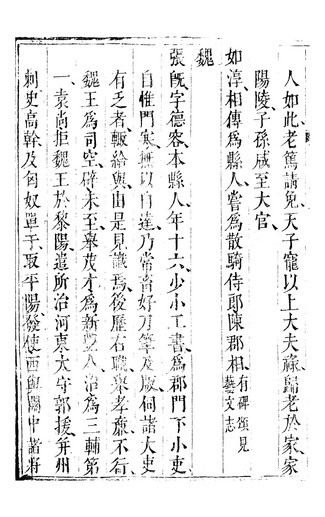 人如此老篤請免天子寵以上大夫祿歸老於家家
陽陵子孫咸至大官
如淳相傳為縣人嘗為散騎侍郎陳郡相有碑頌見藝文志
魏
張既字德容本縣人年十六少小工書為郡門下小吏
自惟門寒無以自達乃常畜好刀筆及版伺諸大吏
有乏者輒給與由是見識焉後歷右職舉孝廉不行
魏王為司空辟未至舉茂才為新豐令治為三輔第
一袁尚拒魏王於黎陽遣所治河東太守郭援并州
刺史高幹及匈奴單于取平陽發使西與關中諸將